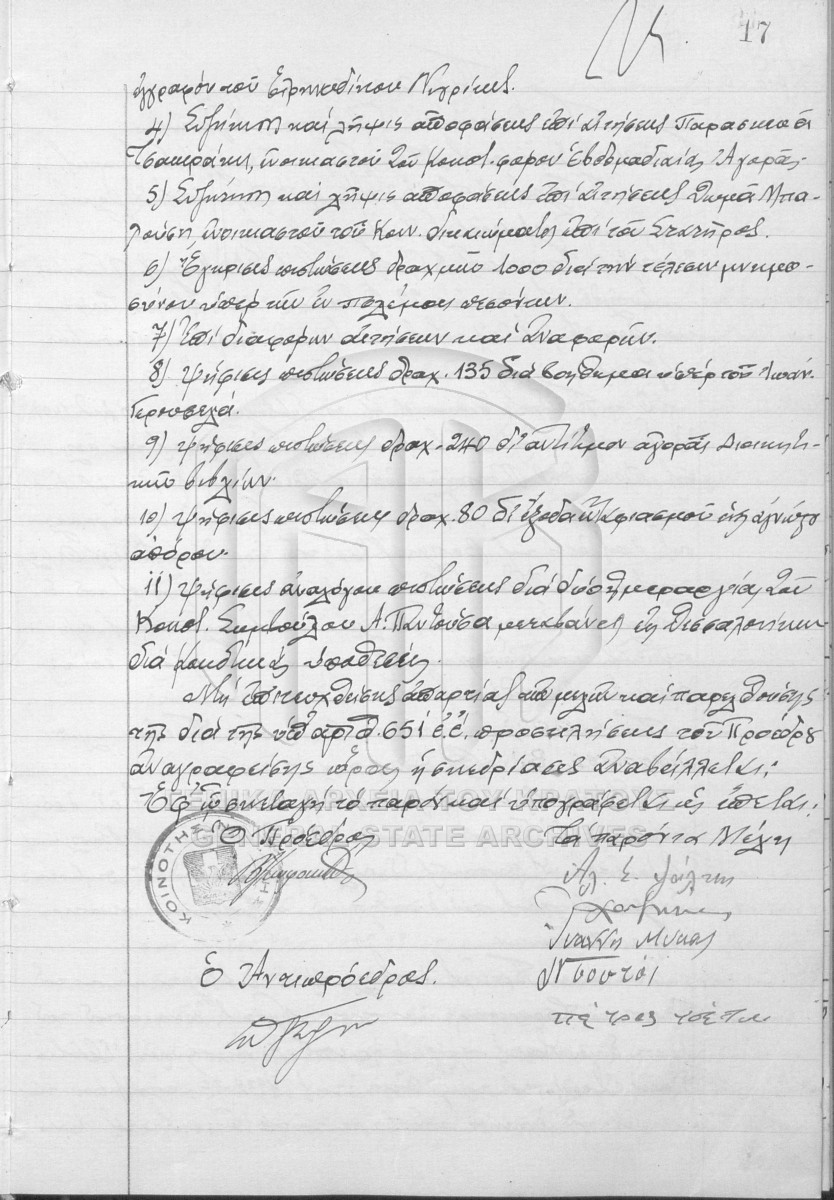 17
ἔγγραφον τοῦ Εἰρηνοδίκου Νιγρίτης.
4) Συζήτησις καὶ λῆψις ἀποφάσεως ἐπὶ αἰτήσεως Παρασκευᾶ
Τσακιράκη, ἐνοικιαστοῦ τοῦ Κοινοτ. φόρου Ἑβδομαδιαίας Ἀγορᾶς.
5) Συζήτησις καὶ λῆψις ἀποφάσεως ἐπὶ αἰτήσεως Θωμᾶ Μπα-
λούση, ἐνοικιαστοῦ τοῦ Κοιν. δικαιώματος ἐπὶ τοῦ Στατῆρος.
6) Ἔγκρισις πιστώσεως δραχμῶν 1000 διὰ τὴν τέλεσιν μνημο-
σύνου ὑπὲρ τῶν ἐν πολέμοις πεσόντων.
7) Ἐπὶ διαφόρων αἰτήσεων καὶ ἀναφορῶν.
8) Ψήφισις πιστώσεως δραχ. 135 διὰ βοήθημα ὑπὲρ τοῦ Ἰωάν.
9) Ψήφισις πιστώσεως δραχ. 240 δι' ἀντίτιμον ἀγορᾶς Διοικητι-
κῶν βιβλίων.
10) Ψήφισις πιστώσεως δραχ. 80 δι' ἔξοδα ἐνταφιασμοῦ ἑνὸς ἀγνώστου
ἀπόρου.
11) Ψήφισις ἀναλόγου πιστώσεως διὰ δύο ἡμεραργίας τοῦ
Κοινοτ. Συμβούλου Α. Παντούσα μεταβάντος εἰς Θεσσαλονίκην
διὰ κοινοτικὰς ὑποθέσεις.
Μὴ ἐπιτευχθείσης ἀπαρτίας τῶν μελῶν καὶ παρελθούσης
τῆς διὰ τῆς ὑπ' ἀριθ. 651 ἐ.ἔ. προσκλήσεως τοῦ Προέδρου
ἀναγραφείσης ὥρας ἡ συνεδρίασις ἀναβάλλεται.
Ἐφ' ᾧ συνετάγη τὸ παρὸν καὶ ὑπογράφεται ὡς ἕπεται:
ΓΕΝΙΚΑ ΑΡΧΕΙΑ ΤΟΥ ΚΡΑΤΟΥΣ
GENERAL STATE ARCHIVES
Ὁ Πρόεδρος
Τὰ παρόντα Μέλη
ΚΟΙΝΟΤΗΣ
Ὁ Ἀντιπρόεδρος.